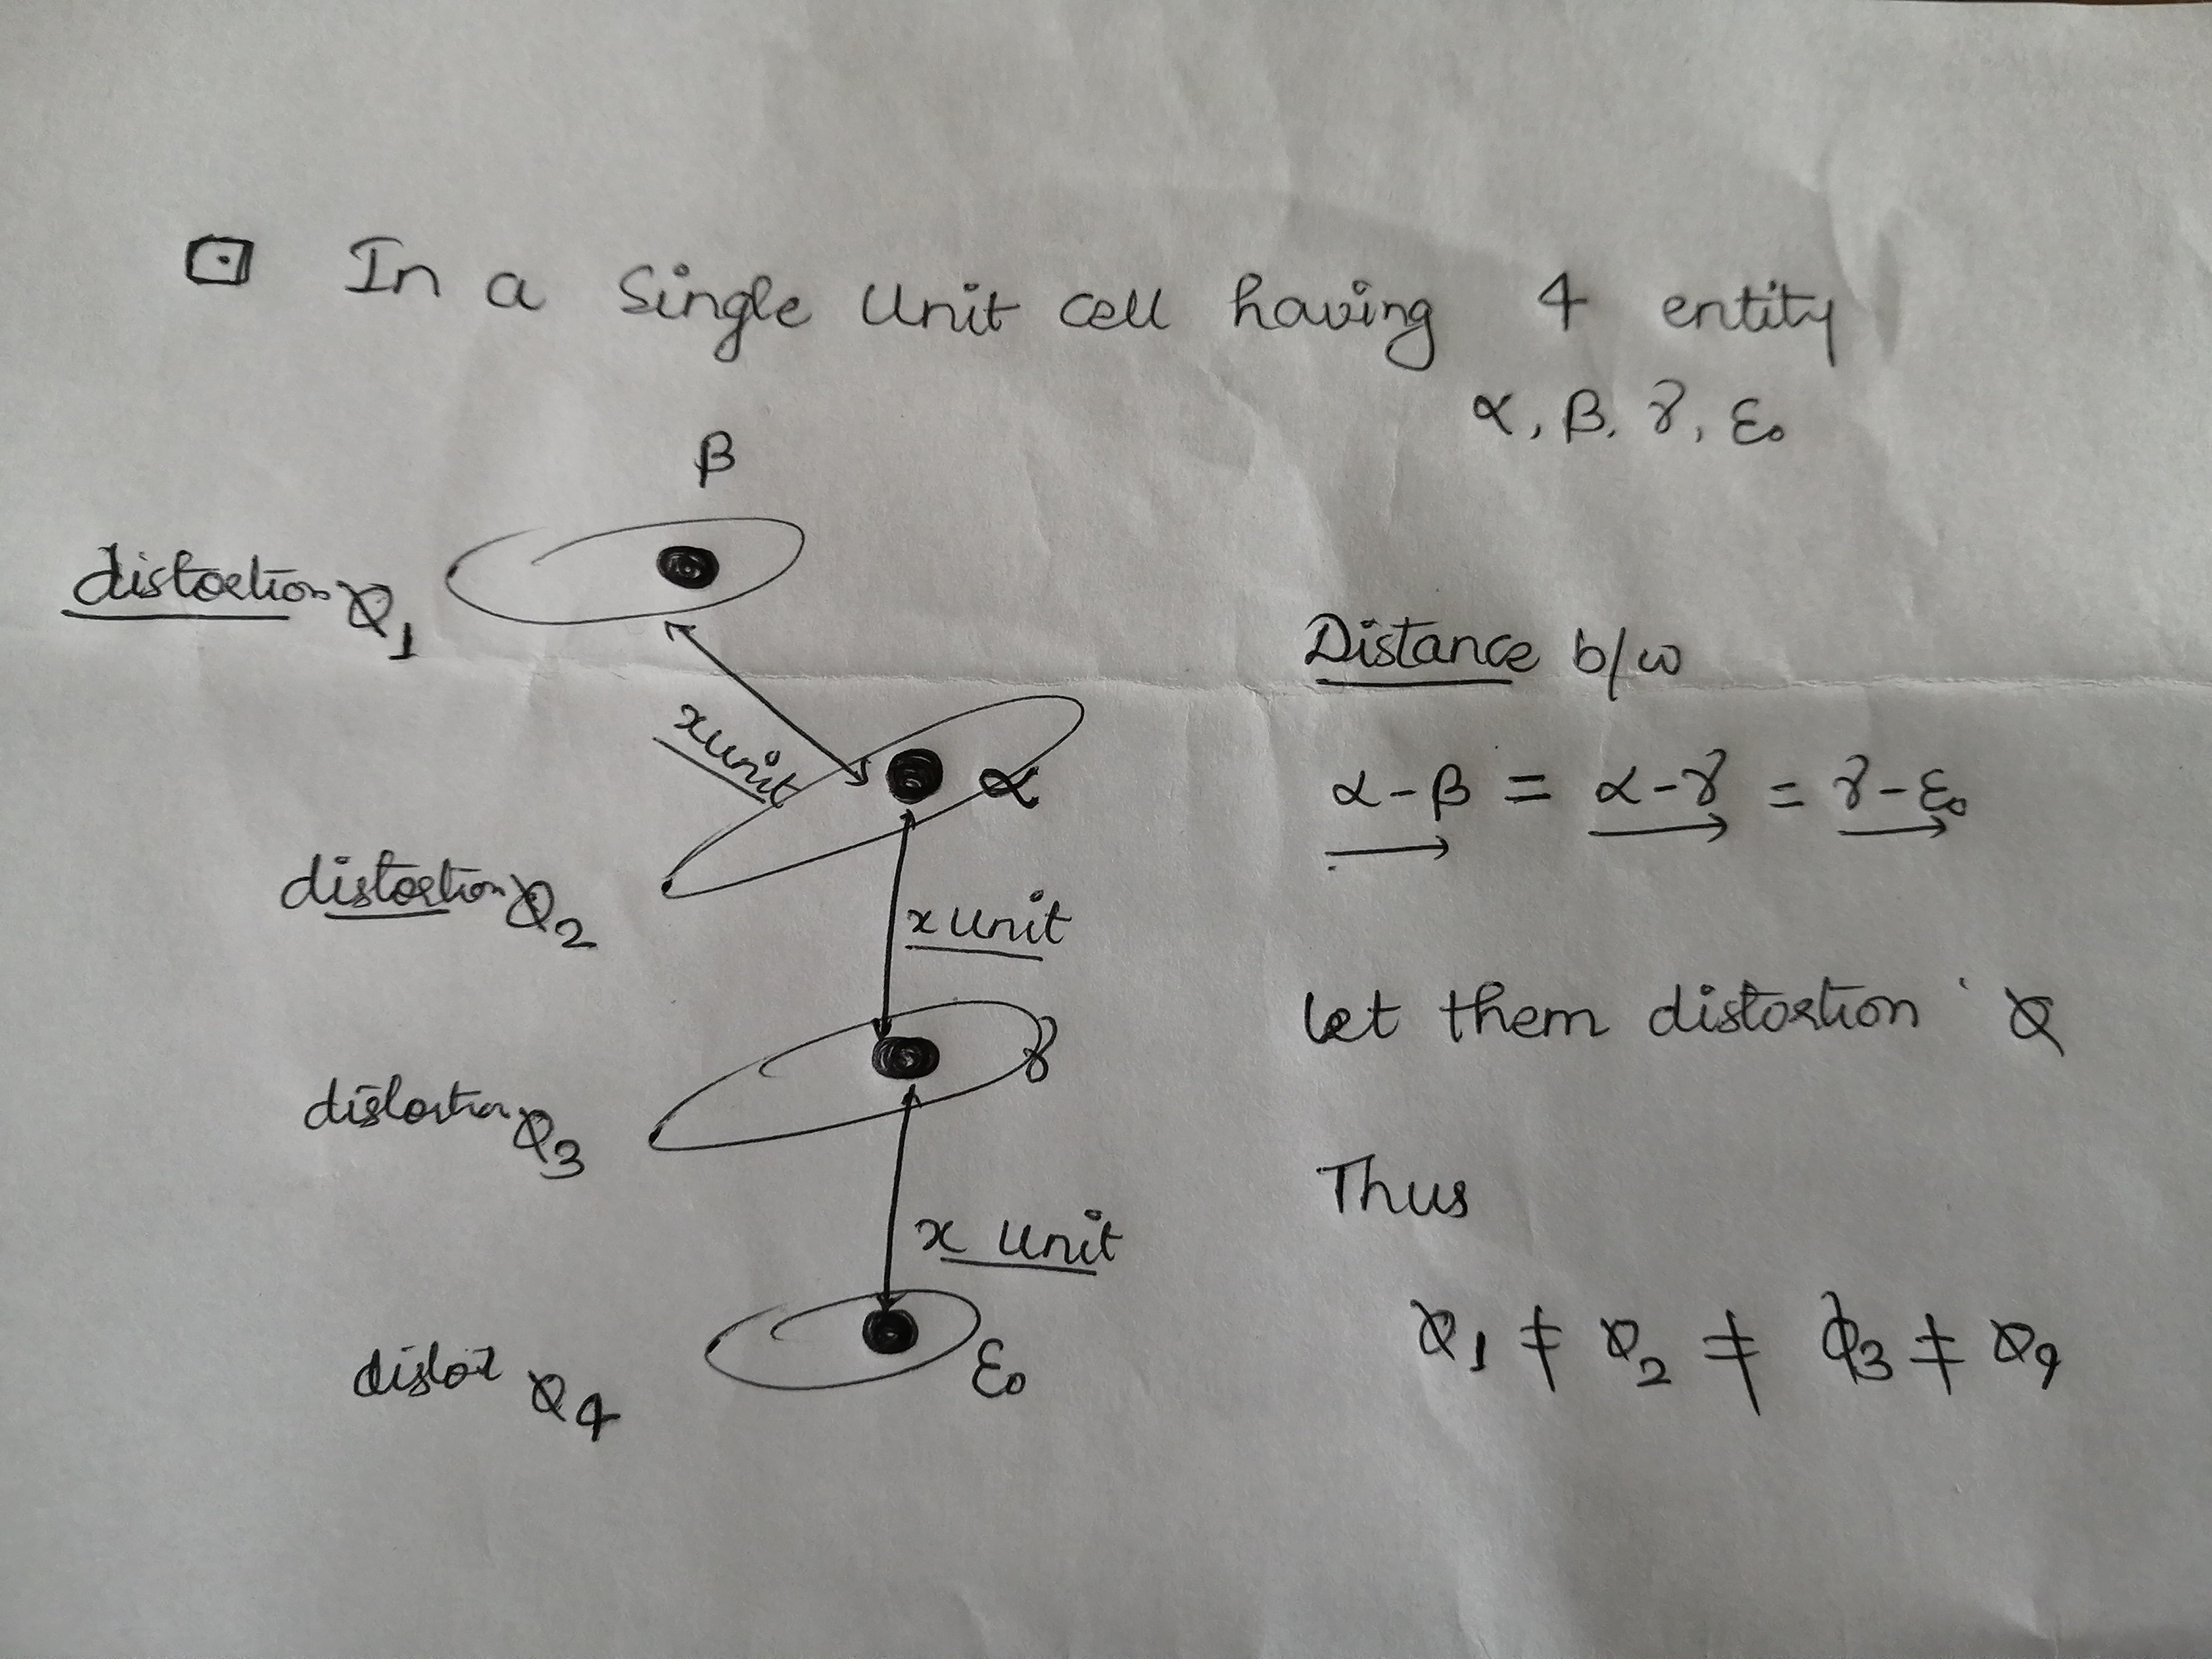 In a Single Unit cell having 4 entity
α, β, γ, ε₀
β
distortion Q₁
x unit
α
distortion Q₂
x unit
γ
distortion Q₃
x unit
ε₀
distor Q₄
Distance b/w
α-β = α-γ = γ-ε₀
let them distortion Q
Thus
Q₁ ≠ Q₂ ≠ Q₃ ≠ Q₄